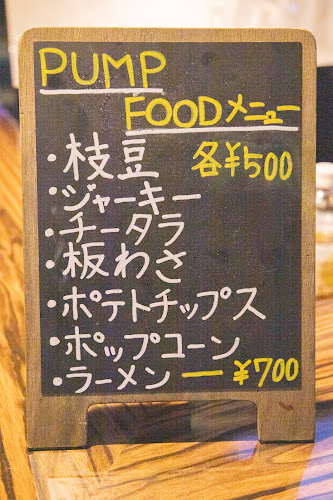 PUMP
FOODメニュー
・枝豆 各¥500
・ジャーキー
・チータラ
・板わさ
・ポテトチップス
・ポップコーン
・ラーメン ― ¥700